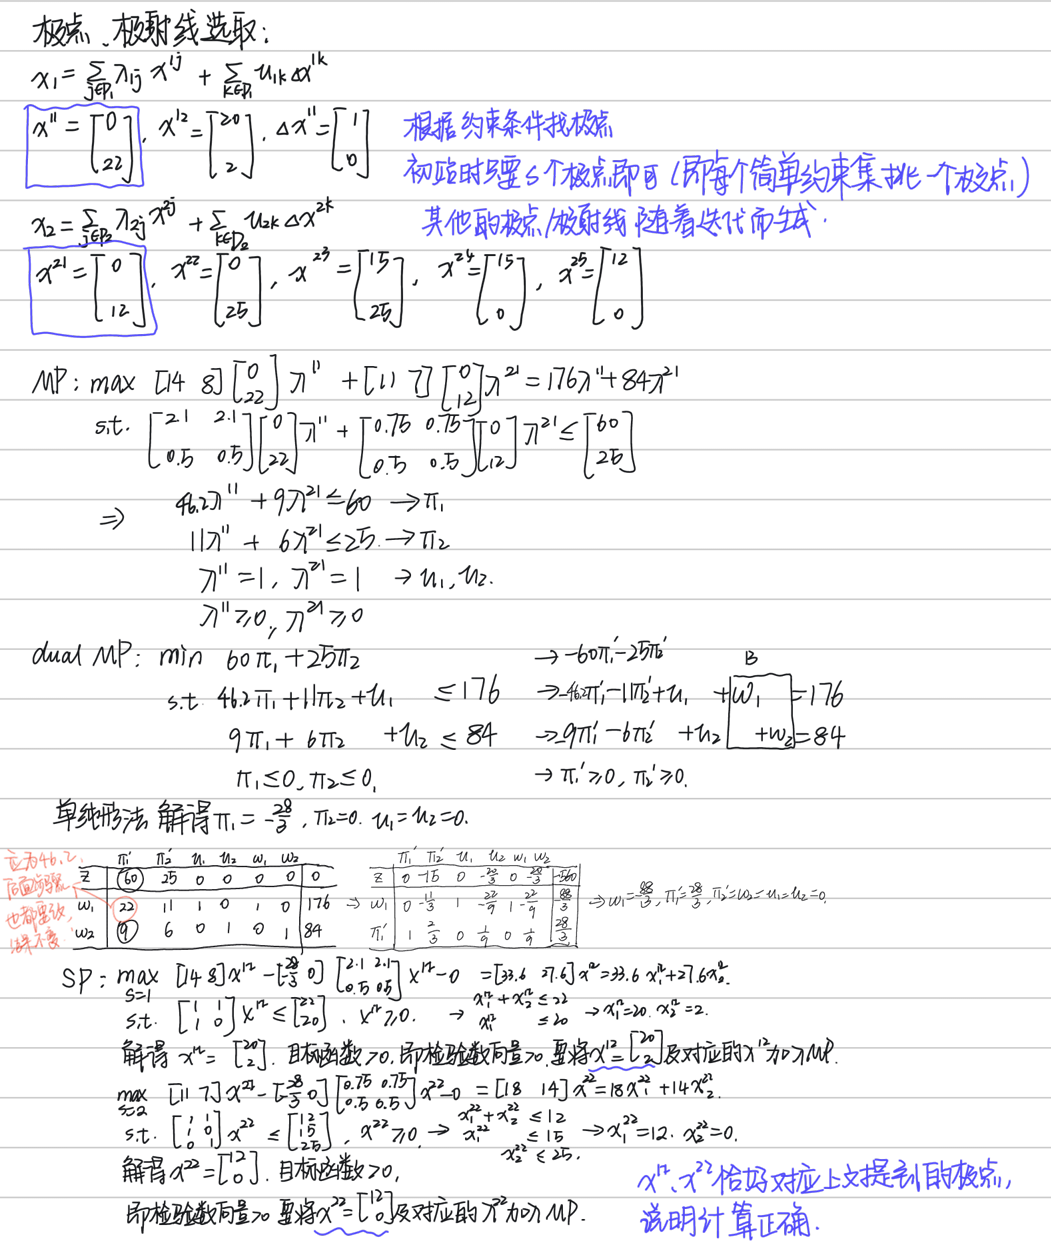 极点、极射线选取:
x₁ = Σ_{j∈P₁} λ₁ⱼ x^{1j} + Σ_{k∈D₁} u₁ₖ Δx^{1k}
x¹¹ = [0 22], x¹² = [20 2], Δx¹¹ = [1 0]
根据约束条件找极点
初始时只要s个极点即可 (即每个简单约束集挑一个极点)
其他的极点/极射线随着迭代而生成.
x₂ = Σ_{j∈P₂} λ₂ⱼ x^{2j} + Σ_{k∈D₂} u₂ₖ Δx^{2k}
x²¹ = [0 12], x²² = [0 25], x²³ = [15 25], x²⁴ = [15 0], x²⁵ = [12 0]
MP: max [14 8] [0 22] λ¹¹ + [11 7] [0 12] λ²¹ = 176λ¹¹ + 84λ²¹
s.t. [2.1 2.1 0.5 0.5] [0 22] λ¹¹ + [0.75 0.75 0.5 0.5] [0 12] λ²¹ ≤ [60 25]
⇒ 46.2λ¹¹ + 9λ²¹ ≤ 60 → π₁
11λ¹¹ + 6λ²¹ ≤ 25 → π₂
λ¹¹ = 1, λ²¹ = 1 → u₁, u₂.
λ¹¹ ≥ 0, λ²¹ ≥ 0
dual MP: min 60π₁ + 25π₂ → -60π₁' - 25π₂' B
s.t. 46.2π₁ + 11π₂ + u₁ ≤ 176 → -46.2π₁' - 11π₂' + u₁ + w₁ = 176
9π₁ + 6π₂ + u₂ ≤ 84 → -9π₁' - 6π₂' + u₂ + w₂ = 84
π₁ ≤ 0, π₂ ≤ 0, → π₁' ≥ 0, π₂' ≥ 0.
单纯形法 解得π₁ = -28/3, π₂ = 0. u₁ = u₂ = 0.
应为46.2, 后面步骤也都要改, 结果不变
π₁' π₂' u₁ u₂ w₁ w₂
z 60 25 0 0 0 0 0
w₁ 22 11 1 0 1 0 176
w₂ 9 6 0 1 0 1 84
⇒
π₁' π₂' u₁ u₂ w₁ w₂
z 0 -15 0 -20/3 0 -20/3 -560
w₁ 0 -11/3 1 -22/9 1 -22/9 -88/3
π₁' 1 2/3 0 1/9 0 1/9 28/3
⇒ w₁ = -88/3, π₁' = 28/3, π₂' = w₂ = u₁ = u₂ = 0.
SP: max s=1 [14 8]x¹² - [-28/3 0] [2.1 2.1 0.5 0.5] x¹² - 0 = [33.6 27.6]x¹² = 33.6x₁¹² + 27.6x₂¹².
s.t. [1 1 1 0] x¹² ≤ [22 20], x¹² ≥ 0. → x₁¹² + x₂¹² ≤ 22 x₁¹² ≤ 20 → x₁¹² = 20. x₂¹² = 2.
解得 x¹² = [20 2]. 目标函数>0, 即检验数向量>0, 要将x¹² = [20 2]及对应的λ¹²加入MP.
max s=2 [11 7]x²² - [-28/3 0] [0.75 0.75 0.5 0.5] x²² - 0 = [18 14]x²² = 18x₁²² + 14x₂²².
s.t. [1 1 1 0 0 1] x²² ≤ [12 15 25], x²² ≥ 0, → x₁²² + x₂²² ≤ 12 x₁²² ≤ 15 x₂²² ≤ 25. → x₁²² = 12. x₂²² = 0.
解得x²² = [12 0]. 目标函数>0,
即检验数向量>0 要将x²² = [12 0]及对应的λ²²加入MP.
x¹², x²² 恰好对应上文提到的极点,
说明计算正确.